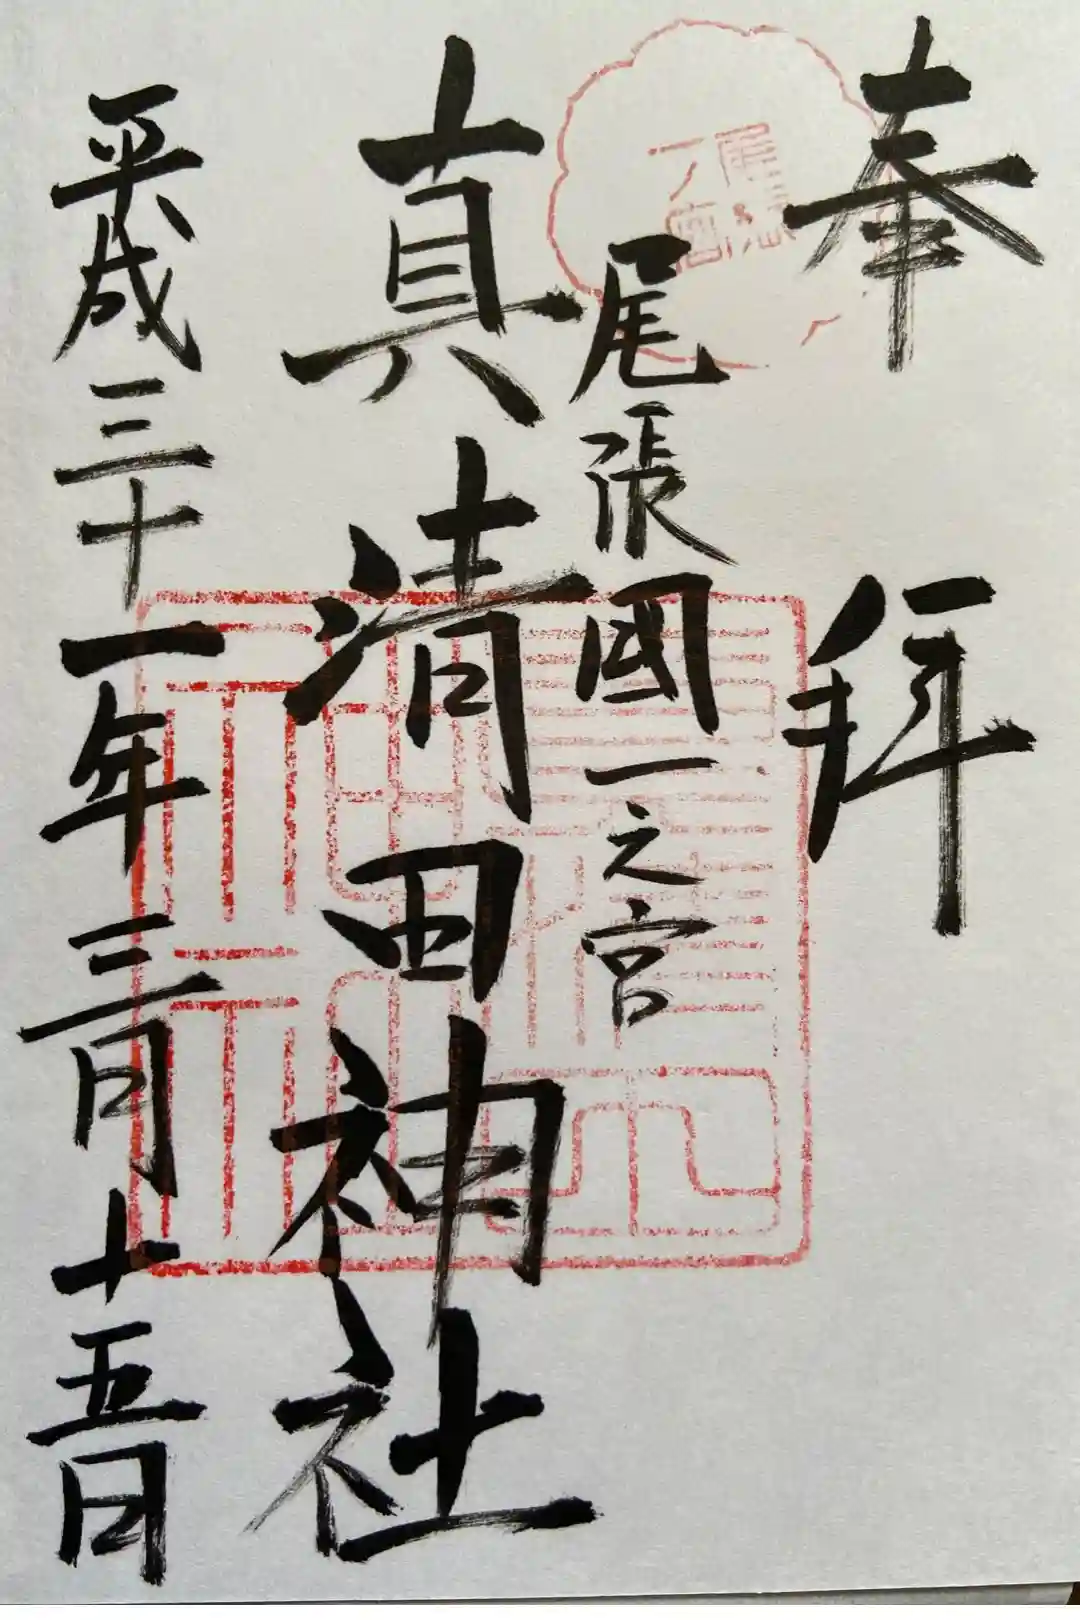 奉拝
尾張國一之宮
真清田神社
平成三十一年三月十五日
尾張
一宮